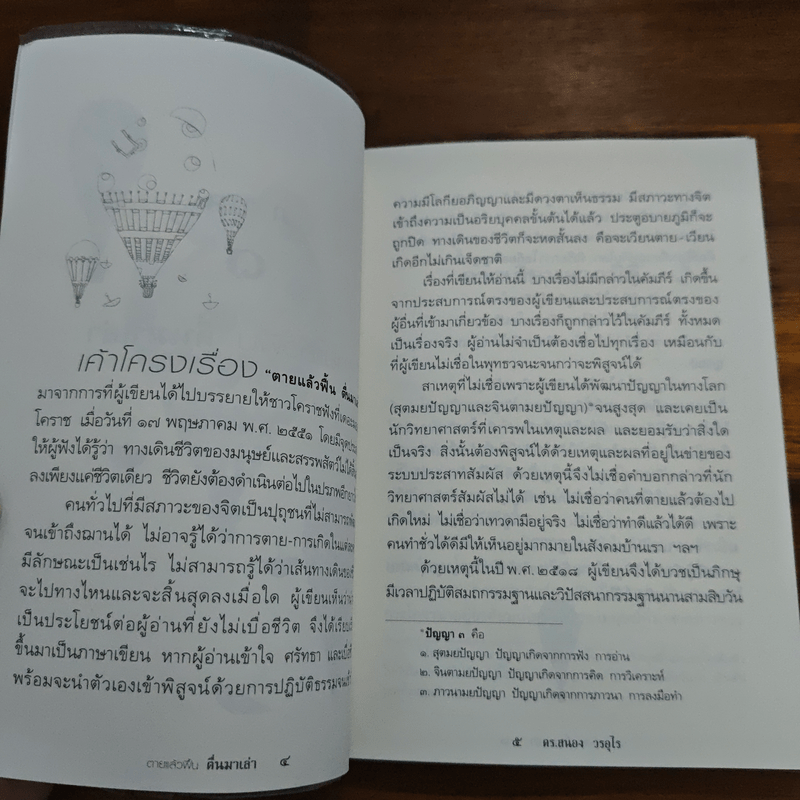 เค้าโครงเรื่อง "ตายแล้วฟื้น
มาจากการที่ผู้เขียนได้ไปบรรยายให้ชาวโคราชฟังที่
โคราช เมื่อวันที่ ๑๗ พฤษภาคม พ.ศ. ๒๕๕๑
ให้ผู้ฟังได้รู้ว่า ทางเดินชีวิตของมนุษย์และสรรพสัตว์
ลงเพียงแค่ชีวิตเดียว ชีวิตยังต้องดำเนินต่อไปในปรภพ
คนทั่วไปที่มีสภาวะของจิตเป็นปุถุชนที่ไม่สามารถ
จนเข้าถึงฌานได้ ไม่อาจรู้ได้ว่าการตาย-การเกิดใน
มีลักษณะเป็นเช่นไร ไม่สามารถรู้ได้ว่าเส้นทางเดิน
จะไปทางไหนและจะสิ้นสุดลงเมื่อใด ผู้เขียนเห็นว่า
เป็นประโยชน์ต่อผู้อ่านที่ยังไม่เบื่อชีวิต จึงได้
ขึ้นมาเป็นภาษาเขียน หากผู้อ่านเข้าใจ ศรัทธา
พร้อมจะนำตัวเองเข้าพิสูจน์ด้วยการปฏิบัติธรรม
ตายแล้วฟื้น ตื่นมาเล่า ๔
ความมีโลกียอภิญญาและมีดวงตาเห็นธรรม มีสภาวะทางจิต
เข้าถึงความเป็นอริยบุคคลขั้นต้นได้แล้ว ประตูอบายภูมิก็จะ
ถูกปิด ทางเดินของชีวิตก็จะหดสั้นลง คือจะเวียนตาย-เวียน
เกิดอีกไม่เกินเจ็ดชาติ
เรื่องที่เขียนให้อ่านนี้ บางเรื่องไม่มีกล่าวในคัมภีร์ เกิดขึ้น
จากประสบการณ์ตรงของผู้เขียนและประสบการณ์ตรงของ
ผู้อื่นที่เข้ามาเกี่ยวข้อง บางเรื่องก็ถูกกล่าวไว้ในคัมภีร์ ทั้งหมด
เป็นเรื่องจริง ผู้อ่านไม่จำเป็นต้องเชื่อไปทุกเรื่อง เหมือนกับ
ที่ผู้เขียนไม่เชื่อในพุทธวจนะจนกว่าจะพิสูจน์ได้
สาเหตุที่ไม่เชื่อเพราะผู้เขียนได้พัฒนาปัญญาในทางโลก
(สุตมยปัญญาและจินตามยปัญญา)*จนสูงสุด และเคยเป็น
นักวิทยาศาสตร์ที่เคารพในเหตุและผล และยอมรับว่าสิ่งใด
เป็นจริง สิ่งนั้นต้องพิสูจน์ได้ด้วยเหตุและผลที่อยู่ในข่ายของ
ระบบประสาทสัมผัส ด้วยเหตุนี้จึงไม่เชื่อคำบอกกล่าวที่นัก
วิทยาศาสตร์สัมผัสไม่ได้ เช่น ไม่เชื่อว่าคนที่ตายแล้วต้องไป
เกิดใหม่ ไม่เชื่อว่าเทวดามีอยู่จริง ไม่เชื่อว่าทำดีแล้วได้ดี เพราะ
คนทำชั่วได้ดีมีให้เห็นอยู่มากมายในสังคมบ้านเรา ฯลฯ
ด้วยเหตุนี้ในปี พ.ศ. ๒๕๑๘ ผู้เขียนจึงได้บวชเป็นภิกษุ
มีเวลาปฏิบัติสมถกรรมฐานและวิปัสสนากรรมฐานนานสามสิบวัน
*ปัญญา ๓ คือ
๑. สุตมยปัญญา ปัญญาเกิดจากการฟัง การอ่าน
๒. จินตามยปัญญา ปัญญาเกิดจากการคิด การวิเคราะห์
๓. ภาวนามยปัญญา ปัญญาเกิดจากการภาวนา การลงมือทำ
๕ ดร.สนอง วรอุไร